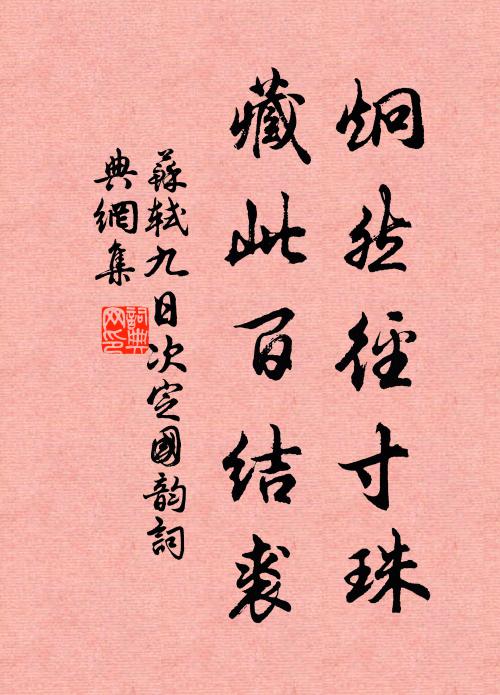 炯然徑寸珠
藏此百結裘
蘇軾九日次定國韵詞
典網集
詞典網印